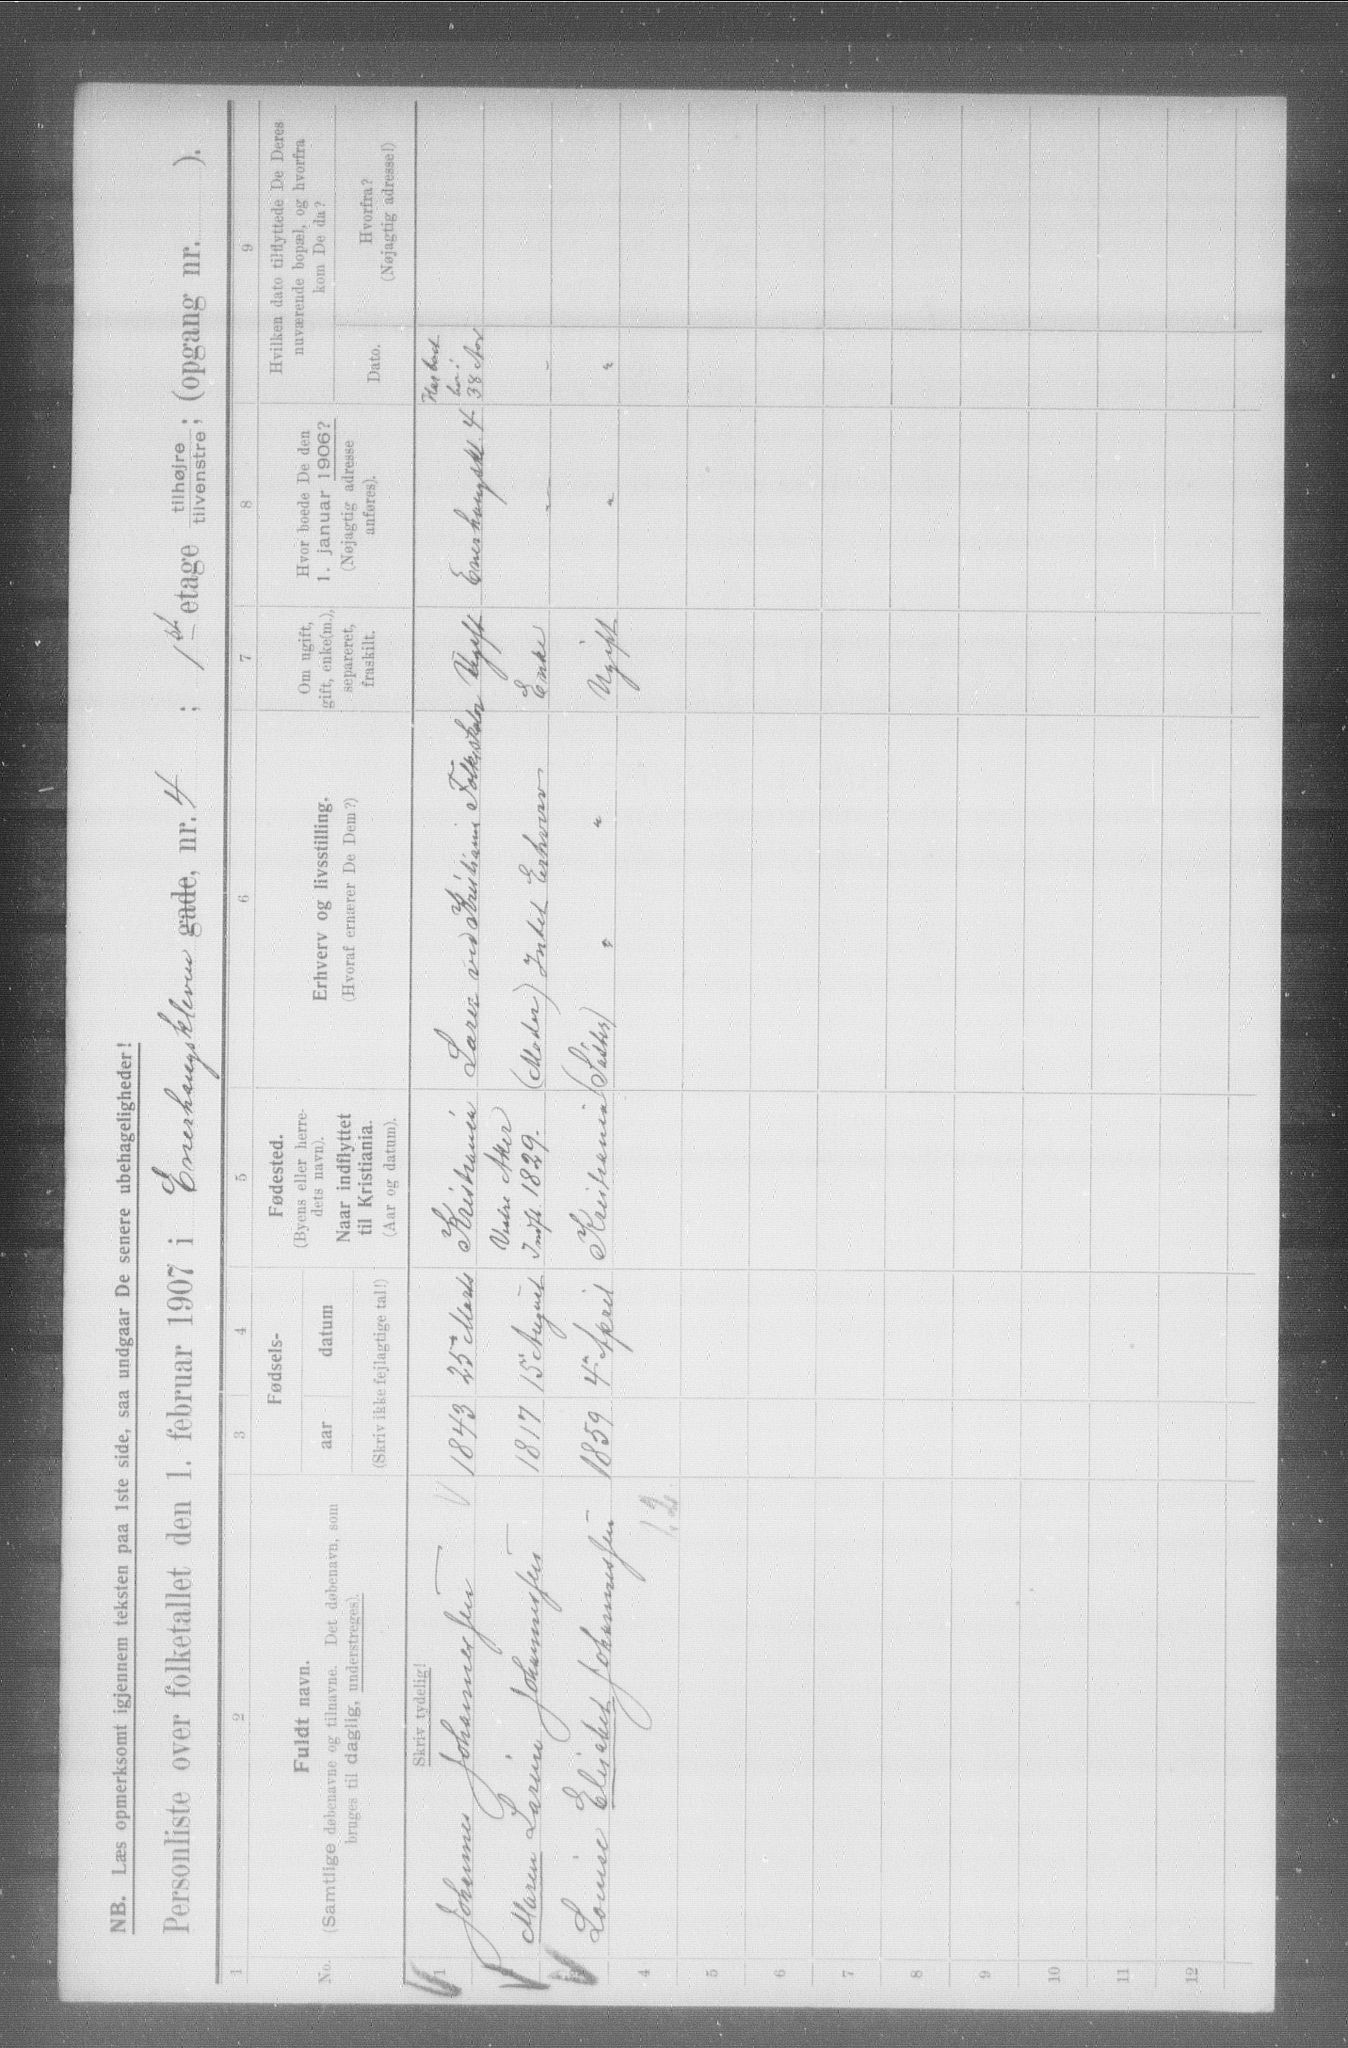 NB. Læs opmerksomt igjennem teksten paa 1ste side, saa undgaar De senere ubehageligheder!
Personliste over folketallet den 1. februar 1907 i Enerhaugskleven gade, nr. 4 ; 1ste etage tilhøjre tilvenstre; (opgang nr. ).
1 2 3 4 5 6 7 8 9
No.
Fuldt navn.
(Samtlige døbenavne og tilnavne. Det døbenavn, som
bruges til daglig, understreges).
Fødsels-
aar datum
(Skriv ikke fejlagtige tal!)
Fødested.
(Byens eller herre-
dets navn).
Naar indflyttet
til Kristiania.
(Aar og datum).
Erhverv og livsstilling.
(Hvoraf ernærer De Dem?)
Om ugift,
gift, enke(m.),
separeret,
fraskilt.
Hvor boede De den
1. januar 1906?
(Nøjagtig adresse
anføres).
Hvilken dato tilflyttede De Deres
nuværende bopæl, og hvorfra
kom De da?
Dato.
Hvorfra?
(Nøjagtig adresse!)
Skriv tydelig!
1 Johannes Johannessen 1843 25 Marts Kristiania Lærer ved Kristiania Folkeskoler Ugift Enerhaugskl. 4 Har boet her i 38 Aar
2 Maren Larine Johannessen 1817 15 August Vestre Aker Indfl. 1829. (Moder) Intet Erhverv Enke - -
3 Louise Elisabet Johannessen 1859 4 April Kristiania (Søster) " " Ugift " "
4 1. 2
5
6
7
8
9
10
11
12